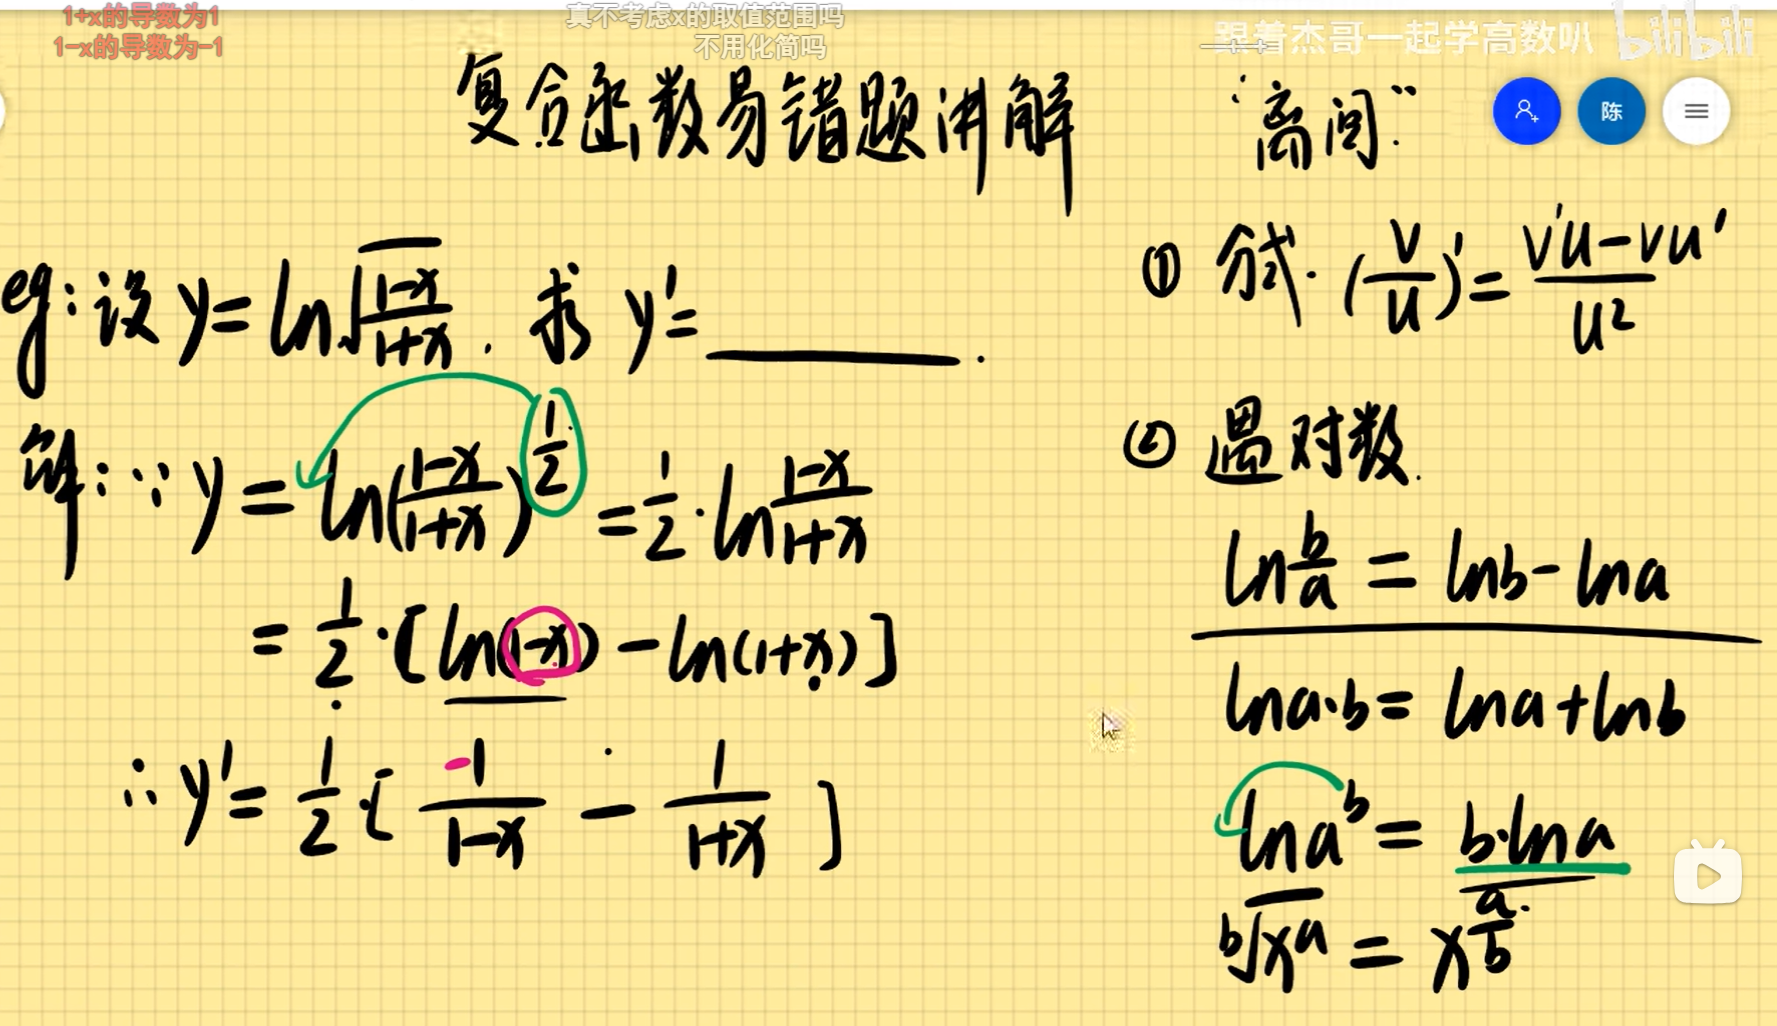 1+x的导数为1
1-x的导数为-1
真不考虑x的取值范围吗
不用化简吗
跟着杰哥一起学高数叭 bilibili
复合函数易错题讲解
"离间"
陈
eg: 设 y = ln√((1-x)/(1+x)). 求 y' = ______.
解: ∵ y = ln((1-x)/(1+x))^(1/2) = 1/2 · ln (1-x)/(1+x)
= 1/2 · [ln(1-x) - ln(1+x)]
∴ y' = 1/2 · [ -1/(1-x) - 1/(1+x) ]
① 分式. (v/u)' = (v'u - vu')/u²
② 遇对数.
ln b/a = lnb - lna
lna·b = lna + lnb
lna^b = b·lna
b√x^a = x^(a/b)